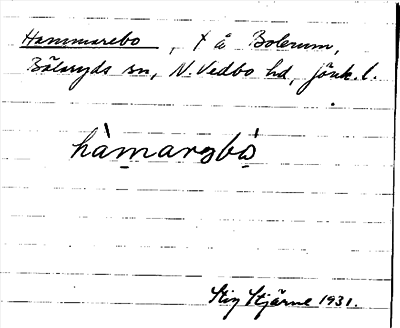 Hammarebo, t å Bolerum,
Bälaryds sn, N. Vedbo hd, jönk. l.
hàmarəbò̱
Stig Stjärne 1931.